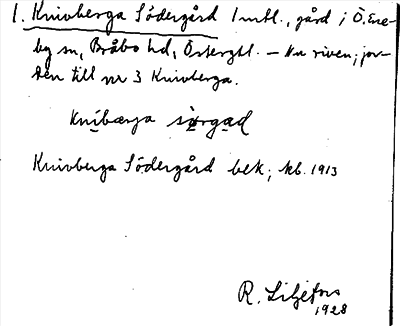 1. Knivberga Södergård 1 mtl., gård i Ö. Ene-
by sn, Bråbo hd, Östergtl. – Nu riven; jor-
den till nr 3 Knivberga.
Knibærja sörgad
Knivberga Södergård bek; kb. 1913
R. Liljefors
1928